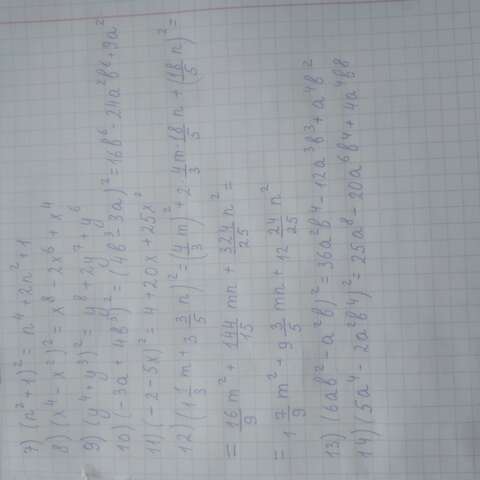 7) (n²+1)² = n⁴+2n²+1
8) (x⁴-x²)² = x⁸-2x⁶+x⁴
9) (y⁴+y³)² = y⁸+2y⁷+y⁶
10) (-3a+4b³)² = (4b³-3a)² = 16b⁶-24a²b⁶+9a²
11) (-2-5x)² = 4+20x+25x²
12) (1 1/3 m + 3 3/5 n)² = (4/3 m)² + 2·4/3 m·18/5 n + (18/5 n)² =
= 16/9 m² + 144/15 mn + 324/25 n² =
= 1 7/9 m² + 9 3/5 mn + 12 24/25 n²
13) (6ab²-a²b)² = 36a²b⁴-12a³b³+a⁴b²
14) (5a⁴-2a²b⁴)² = 25a⁸-20a⁶b⁴+4a⁴b⁸